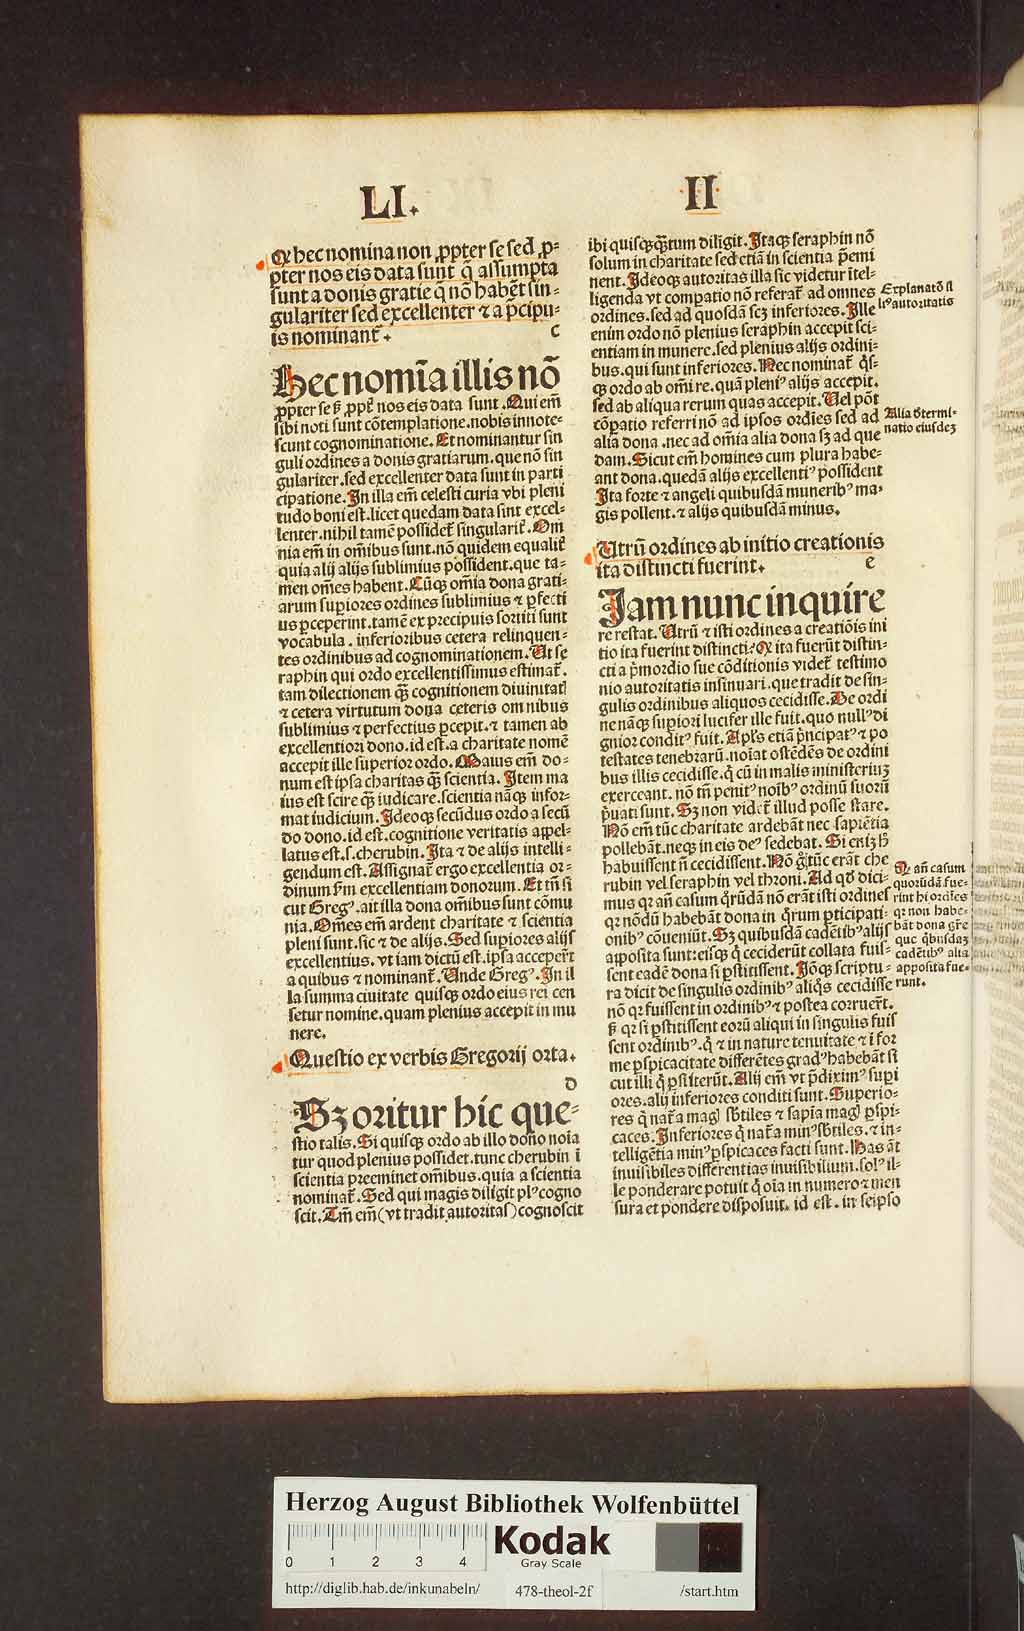 LI.
II
Qꝛ hec nomina non ꝓpter se sed ꝓ-
pter nos eis data sunt q̃ assumpta
sunt a donis gratie q̃ nõ habẽt sin-
gulariter sed excellenter ⁊ a p̃cipu-
is nominant᷑.
c
Hec nomĩa illis nõ
ꝓpter se ꝓpt̃ nos eis data sunt. Qui em̃
sibi noti sunt cõtemplatione. nobis innote-
scunt cognominatione. Et nominantur sin
guli ordines a donis gratiarum. que nõ sin
gulariter. sed excellenter data sunt in parti
cipatione. In illa em̃ celesti curia vbi pleni
tudo boni est. licet quedam data sint excel-
lenter. nihil tamẽ possidet᷑ singularit̃. Om̃
nia em̃ in om̃ibus sunt. nõ quidem equalit̃
quia alij alijs sublimius possident. que ta-
men om̃es habent. Cũqꝫ om̃ia dona grati-
arum supiores ordines sublimius ⁊ ꝑfecti
us ꝑceperint. tamẽ ex precipuis sortiti sunt
vocabula. inferioribus cetera relinquen-
tes ordinibus ad cognominationem. Ut se
raphin qui ordo excellentissimus estimat᷑.
tam dilectionem qꝫ̃ cognitionem diuinitat
⁊ cetera virtutum dona ceteris omnibus
sublimius ⁊ perfectius ꝑcepit. ⁊ tamen ab
excellentiori dono. id est. a charitate nomẽ
accepit ille superior ordo. Maius em̃ do-
num est ipsa charitas qꝫ̃ scientia. Item ma
ius est scire qꝫ̃ iudicare. scientia nãqꝫ infor-
mat iudicium. Ideoqꝫ secũdus ordo a secũ
do dono. id est. cognitione veritatis appel-
latus est. s. cherubin. Ita ⁊ de alijs intelli-
gendum est. Assignat᷑ ergo excellentia or-
dinum ẜm excellentiam donorum. Et tñ si
cut Gregꝰ. ait illa dona om̃ibus sunt cõmu
nia. Om̃es em̃ ardent charitate ⁊ scientia
pleni sunt. sic ⁊ de alijs. Sed supiores alijs
excellentius. vt iam dictũ est. ipsa acceper̃t
a quibus ⁊ nominant᷑. Unde Gregꝰ. In il
la summa ciuitate quisqꝫ ordo eius rei cen
setur nomine. quam plenius accepit in mu
nere.
Questio ex verbis Gregorij orta.
d
Sꝫ oritur hic que-
stio talis. Si quisqꝫ ordo ab illo dono noĩa
tur quod plenius possidet. tunc cherubin ĩ
scientia preeminet om̃ibus. quia a scientia
nominat᷑. Sed qui magis diligit plꝰ cogno
scit. Tm̃ em̃ (vt tradit autoritas) cognoscit
ibi quisqꝫ qꝫ̃tum diligit. Itaqꝫ seraphin nõ
solum in charitate sed etiã in scientia p̃emi
nent. Ideoqꝫ autoritas illa sic videtur ĩtel-
ligenda vt compatio nõ referat᷑ ad omnes
ordines. sed ad quosdã scꝫ inferiores. Ille
enim ordo nõ plenius seraphin accepit sci-
entiam in munere. sed plenius alijs ordini-
bus. qui sunt inferiores. Nec nominat᷑ q̇s-
qꝫ ordo ab om̃i re. quã pleniꝰ alijs accepit.
sed ab aliqua rerum quas accepit. Uel põt
cõpatio referri nõ ad ipsos ordĩes sed ad
alia dona. nec ad om̃ia alia dona sꝫ ad que
dam. Sicut em̃ homines cum plura habe-
ant dona. quedã alijs excellentiꝰ possident
Ita forte ⁊ angeli quibusdã muneribꝰ ma-
gis pollent. ⁊ alijs quibusdã minus.
Utrũ ordines ab initio creationis
ita distincti fuerint.
e
Iam nunc inquire
re restat. Utrũ ⁊ isti ordines a creatiõis ini
tio ita fuerint distincti? Qꝛ ita fuerũt distin-
cti a p̃mordio sue cõditionis videt᷑ testimo
nio autoritatis insinuari. que tradit de sin-
gulis ordinibus aliquos cecidisse. De ordi
ne nãqꝫ supiori lucifer ille fuit. quo nullꝰ di
gnior conditꝰ fuit. Apl̃s etiã p̃ncipatꝰ ⁊ po
testates tenebrarũ. noĩat ostẽdẽs de ordini
bus illis cecidisse. q̇ cũ in malis ministeriuꝫ
exerceant. nõ tñ penitꝰ noĩbꝰ ordinũ suorũ
p̃uati sunt. Sꝫ non videt᷑ illud posse stare.
Nõ em̃ tũc charitate ardebãt nec sapiẽtia
pollebãt. neqꝫ in eis deꝰ sedebat. Si eniꝫ h̃
habuissent ñ cecidissent. Nõ g̊ tũc erãt che
rubin vel seraphin vel throni. Ad qd̃ dici-
mus qꝛ añ casum q̃rũdã nõ erãt isti ordines
qꝛ nõdũ habebãt dona in q̃rum ꝑticipati-
onibꝰ cõueniũt. Sꝫ quibusdã cadẽtibꝰ alijs
apposita sunt: eisqꝫ q̇ ceciderũt collata fuis-
sent eadẽ dona si ꝑstitissent. Iõqꝫ scriptu-
ra dicit de singulis ordinibꝰ aliq̃s cecidisse
nõ qꝛ fuissent in ordinibꝰ ⁊ postea corruer̃t.
ẜ qꝛ si ꝑstitissent eorũ aliqui in singulis fuis
sent ordinibꝰ. q̇ ⁊ in nature tenuitate ⁊ ĩ for
me ꝑspicacitate differẽtes gradꝰ habebãt si
cut illi q̇ ꝑstiterũt. Alij em̃ vt p̃diximꝰ supi
ores. alij inferiores conditi sunt. Superio-
res q̇ nat̃a mag̃ sb̃tiles ⁊ sapĩa mag̃ ꝑspi-
caces. Inferiores q̇ nat̃a minꝰ sb̃tiles. ⁊ in-
telligẽtia minꝰ ꝑspicaces facti sunt. Has ãt
inuisibiles differentias inuisibilium. solꝰ il-
le ponderare potuit q̇ oĩa in numero ⁊ men
sura et pondere disposuit. id est. in seipso
Explanatõ il
liꝰ autoritatis
Alia d̃termi-
natio eiusdeꝫ
Qꝛ añ casum
quorũdã fue-
rint hi ordĩes
qꝛ non habe-
bãt dona gr̃e
que q̇busdaꝫ
cadẽtibꝰ alia
apposita fue-
runt.
Herzog August Bibliothek Wolfenbüttel
0 1 2 3 4
Kodak
Gray Scale
http://diglib.hab.de/inkunabeln/ 478-theol-2f /start.htm